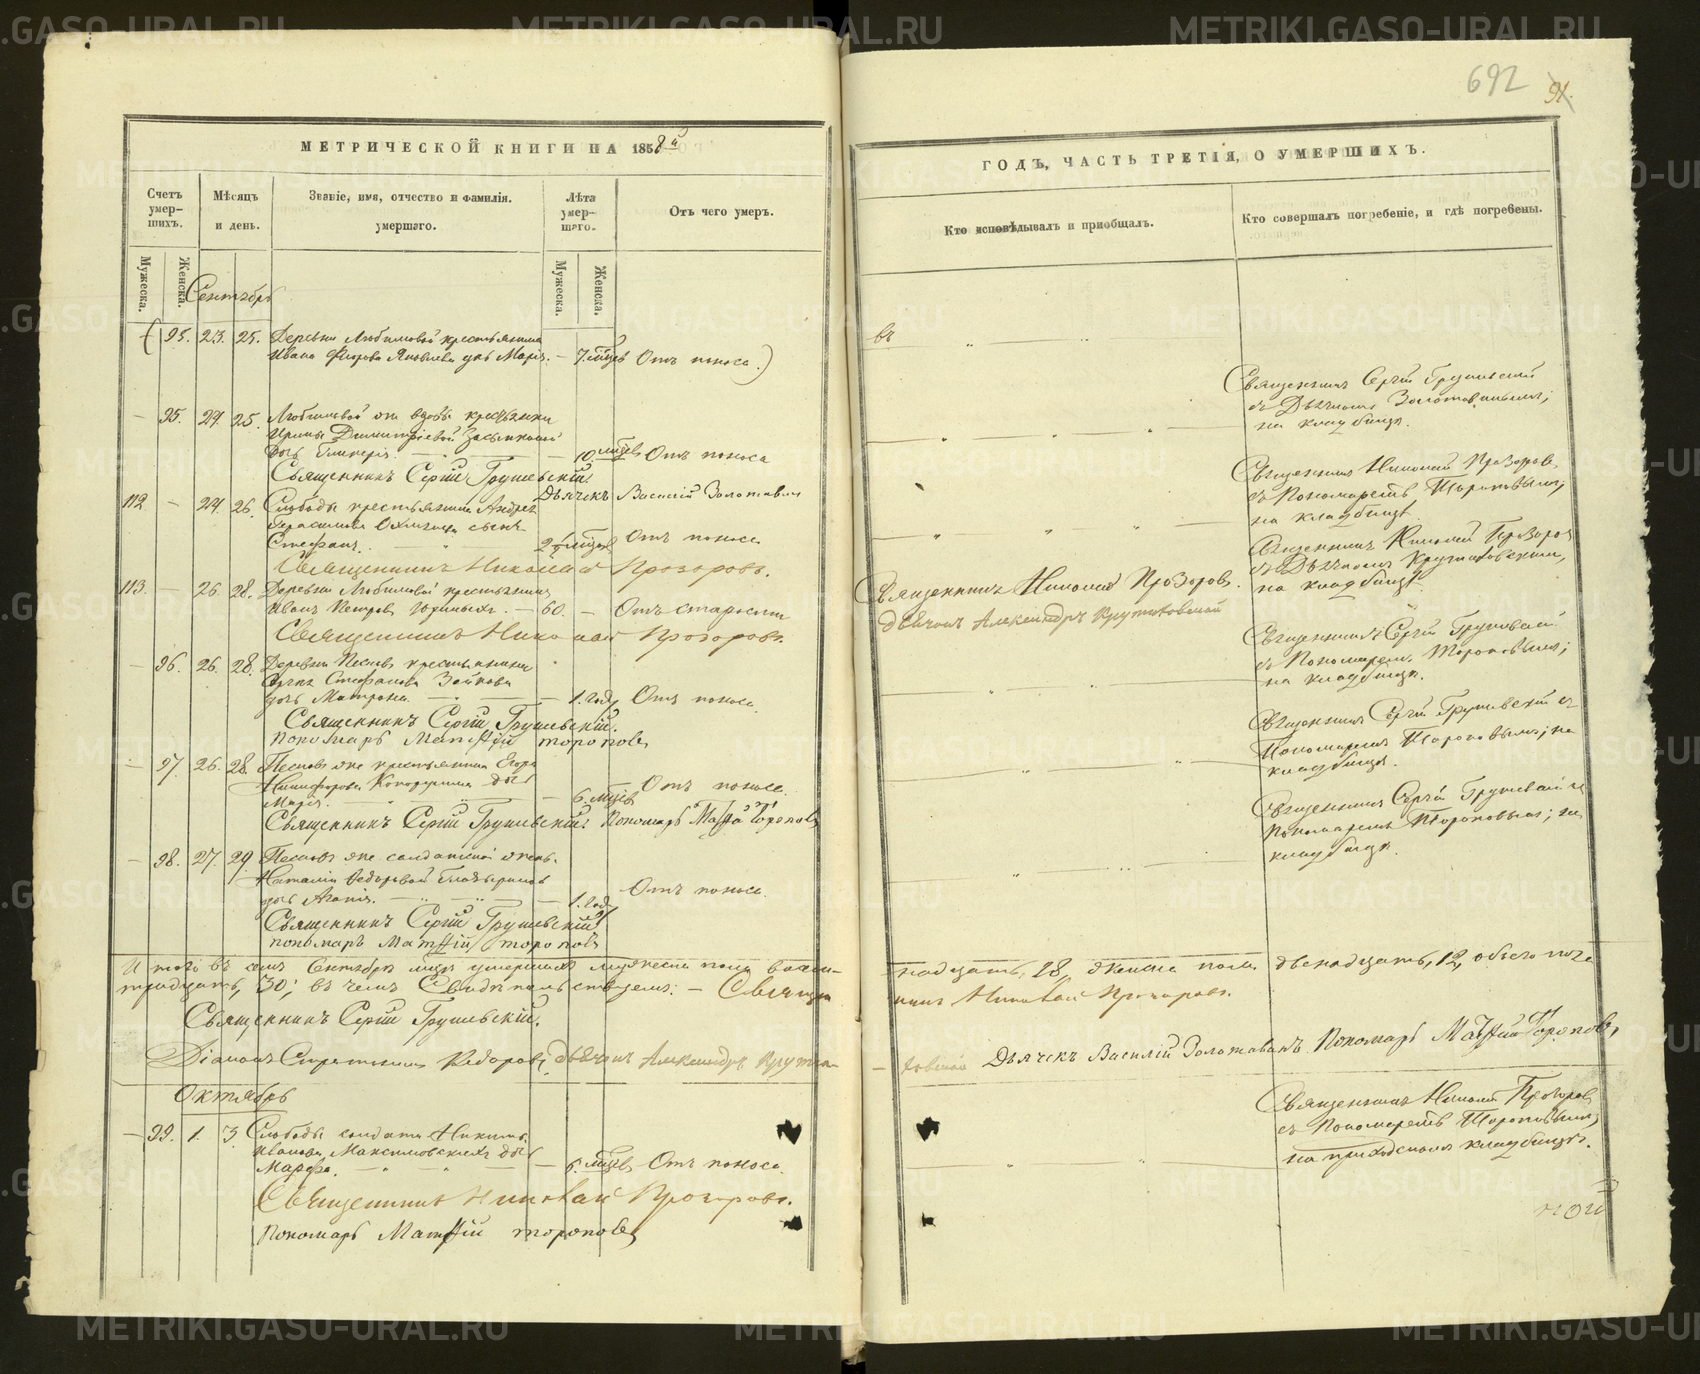 692
91.
МЕТРИЧЕСКОЙ КНИГИ НА 1858й
ГОДЪ, ЧАСТЬ ТРЕТІЯ, О УМЕРШИХЪ.
Счетъ умер-шихъ.
Мѣсяцъ и день.
Званіе, имя, отчество и фамилія. умершаго.
Лѣта умер-шаго.
Отъ чего умеръ.
Кто исповѣдывалъ и пріобщалъ.
Кто совершалъ погребеніе, и гдѣ погребены.
Мужеска.
Женска.
Мужеска.
Женска.
Сентябрь
95. 23. 25. Деревни Любимовой крестьянина
Ивана Яковлева дочь Марія. — 7. мѣсяц Отъ поноса.)
— 95. 24. 25. Любимовой же вдовы крестьянки
Ирины Димитріевой
дочь — 10 мѣсяц Отъ поноса
Священникъ Сергій Грушевскій
на кладбищѣ.
Священникъ Сергій Грушевскій
Дьячекъ Василій Золотавинъ
112 — 24. 26. Слободы крестьянина Андрея
Герасимова сынъ
Стефанъ. 2 мѣсяц Отъ поноса
Священникъ Николай Прозоровъ
съ Пономаремъ Тороповымъ,
на кладбищѣ.
Священникъ Николай Прозоровъ.
113. — 26. 28. Деревни Любимовой крестьянинъ
Иванъ Петровъ — 60. — Отъ старости
Священникъ Николай Прозоровъ.
дьячокъ Александръ Крутиховской
Священникъ Николай Прозоровъ
съ Дьячкомъ Крутиховскимъ,
на кладбищѣ
Священникъ Николай Прозоровъ.
— 96. 26. 28. Деревни крестьянина
Стефанова Зайкова
дочь Матрона — 1. годъ Отъ поноса.
Священникъ Сергій Грушевскій
съ Пономаремъ Тороповымъ;
на кладбищѣ.
Священникъ Сергій Грушевскій.
Пономарь Матѳій Тороповъ
— 97. 26. 28. же крестьянина Егора
Никифорова дочь
Марія. — 6. мѣсяц Отъ поноса.
Священникъ Сергій Грушевскій съ
Пономаремъ Тороповымъ; на
кладбищѣ.
Священникъ Сергій Грушевскій. Пономарь Матѳій Тороповъ
— 98. 27. 29. же солдатской жены
Наталіи Федоровой
дочь Агапія. — 1. годъ Отъ поноса.
Священникъ Сергій Грушевскій съ
пономаремъ Тороповымъ; на
кладбищѣ.
Священникъ Сергій Грушевскій
пономарь Матѳій Тороповъ
Итого въ семъ Сентябрѣ мѣсяцѣ умершихъ мужеска пола восем-
надцать, 18, женска пола двенадцать, 12, обоего пола
тридцать, 30; въ чемъ Свидѣтельствуемъ: — Священ
никъ Николай Прозоровъ.
Священникъ Сергій Грушевскій.
Діаконъ Федоровъ, дьячокъ Александръ Крути-
ховской Дьячекъ Василій Золотавинъ Пономарь Матѳій Тороповъ,
Октябрь
— 99. 1. 3. Слободы солдата Никиты
Иванова Максимовскихъ дочь
Марѳа. — 6. мѣсяц Отъ поноса.
Священникъ Николай Прозоровъ
съ Пономаремъ Тороповымъ,
на приходскомъ кладбищѣ.
Священникъ Николай Прозоровъ.
Пономарь Матѳій Тороповъ
METRIKI.GASO-URAL.RU